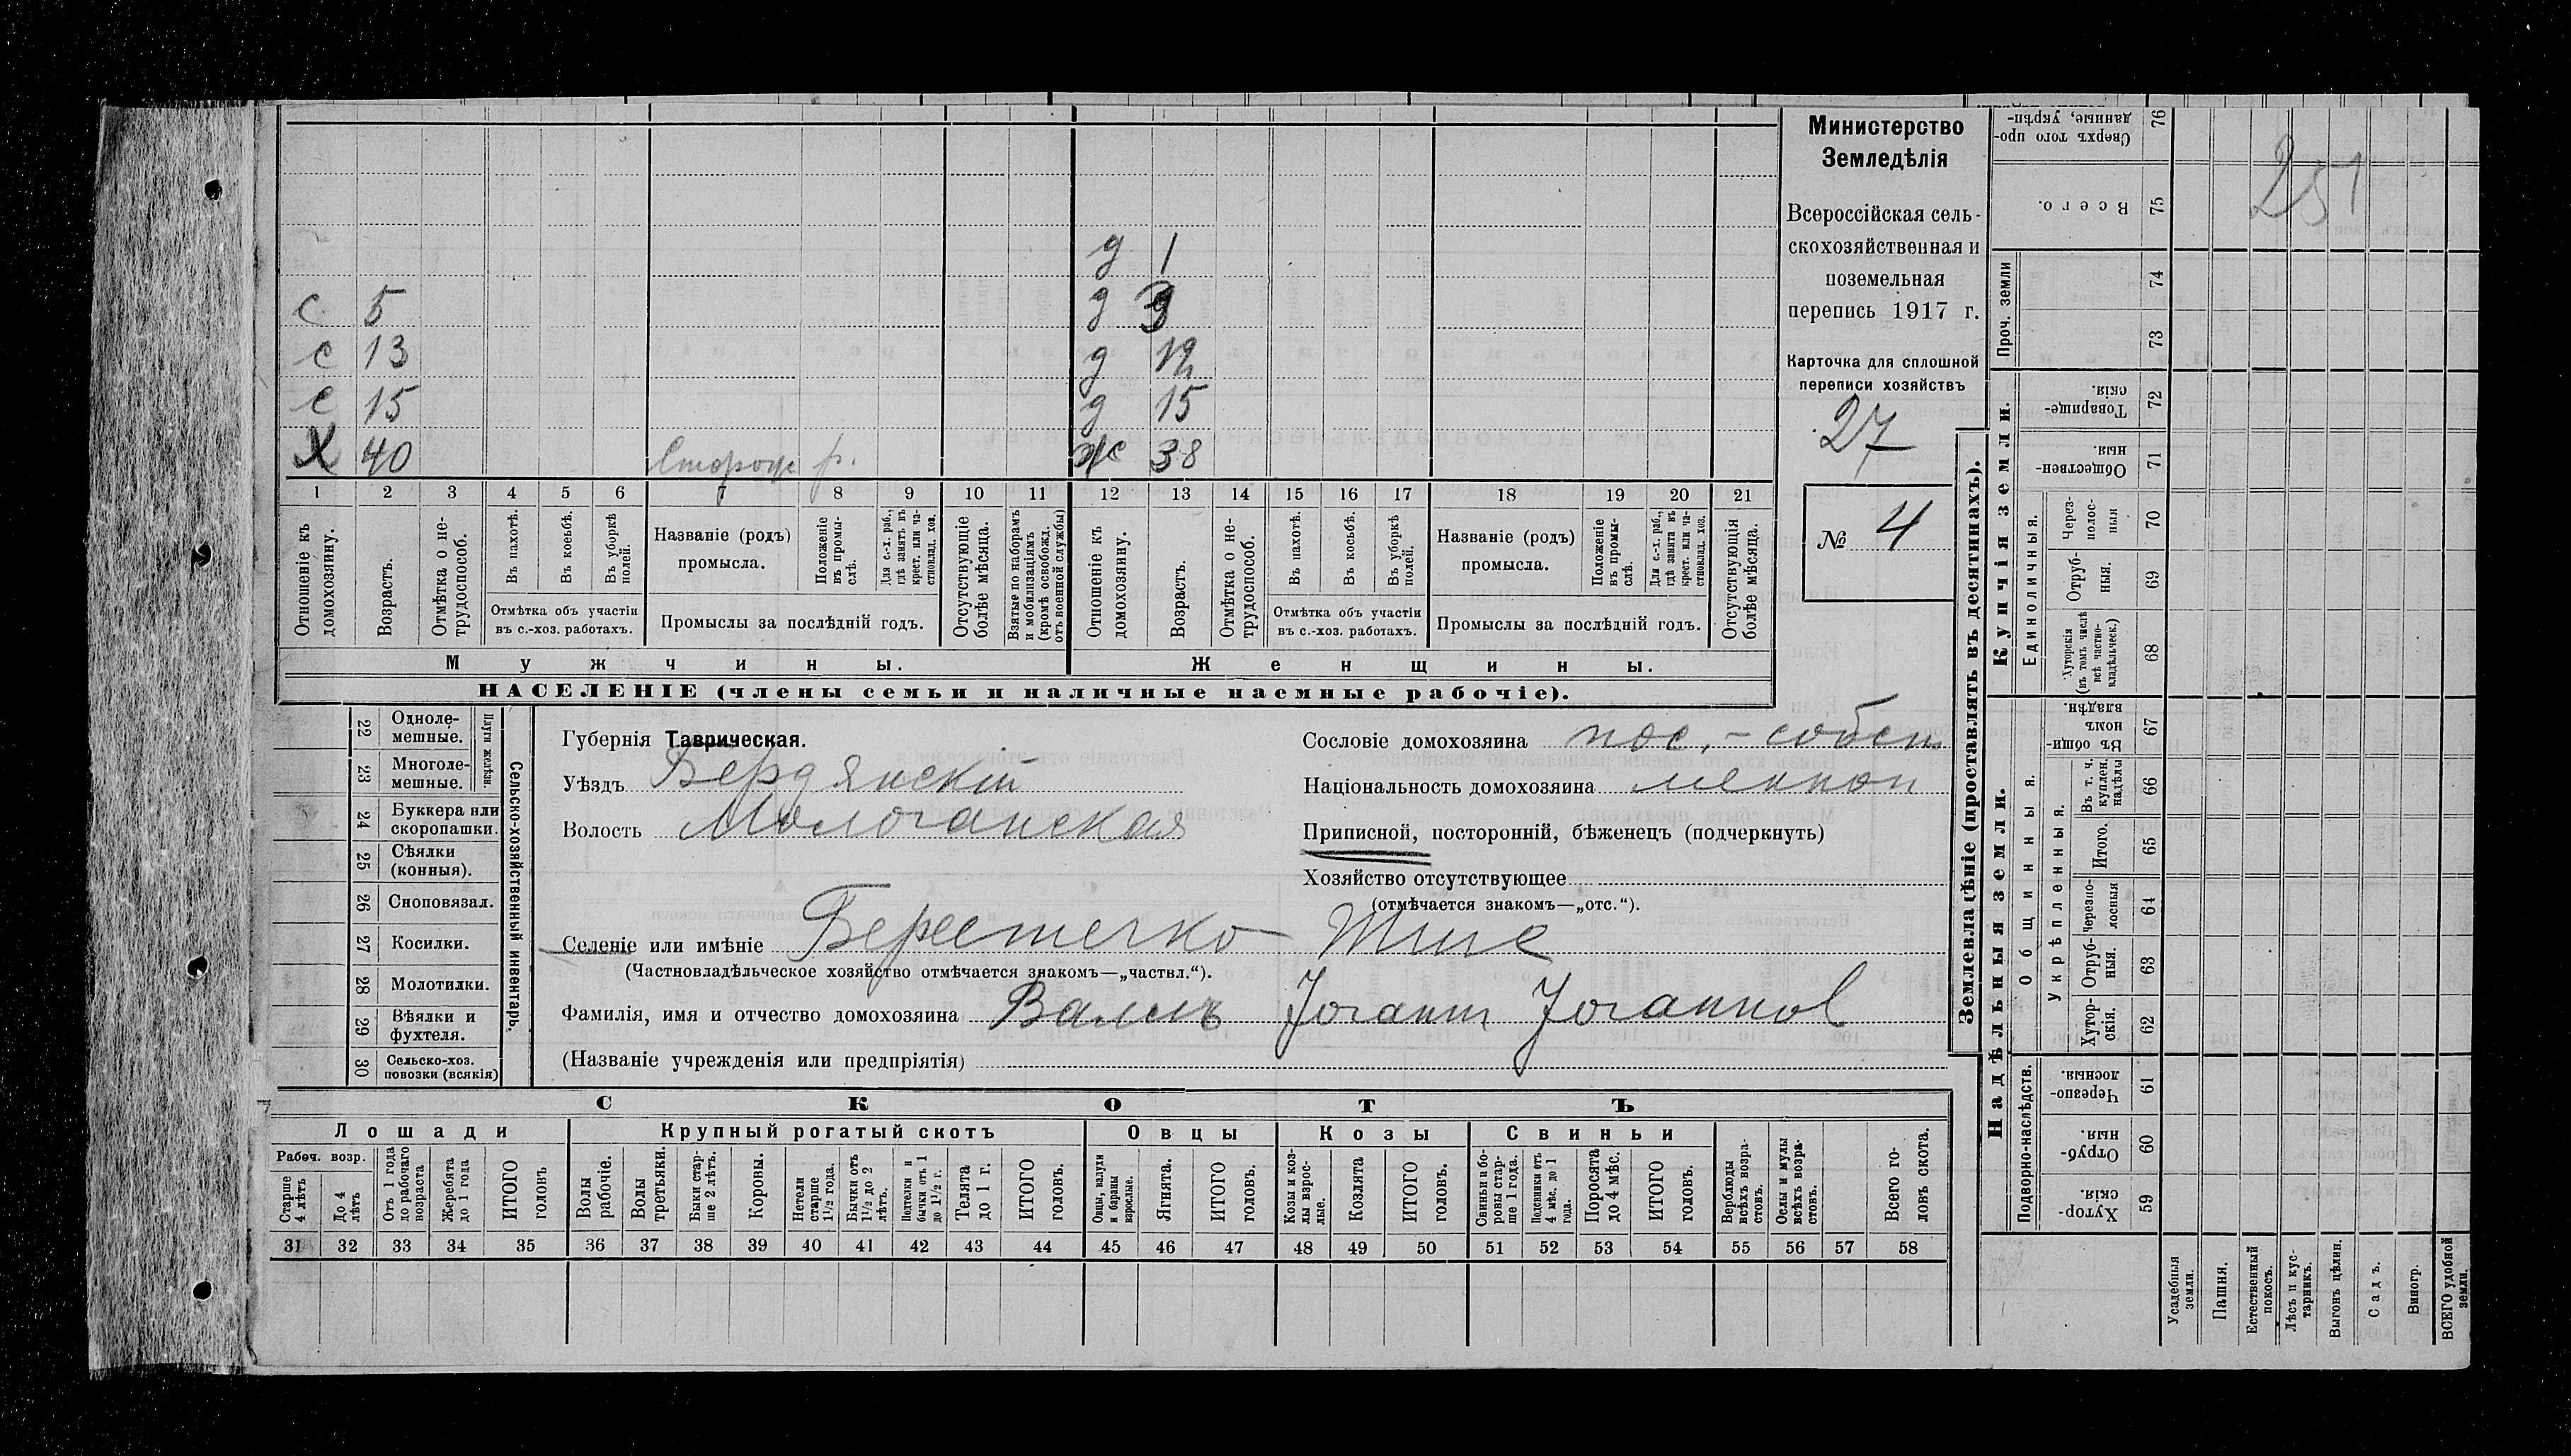 Министерство
Земледѣлія
Всероссійская сель-
скохозяйственная и
поземельная
перепись 1917 г.
Карточка для сплошной
переписи хозяйствъ
27
№ 4
д 1
с 5 д
с 13 д 12
с 15 д 15
Х 40 Сторож р. ж 38
1 2 3 4 5 6 7 8 9 10 11 12 13 14 15 16 17 18 19 20 21
Отношеніе къ домохозяину.
Возрастъ.
Отмѣтка о не-трудоспособ.
Въ пахотѣ.
Въ косьбѣ.
Въ уборкѣ полей.
Отмѣтка объ участіи
въ с.-хоз. работахъ.
Названіе (родъ)
промысла.
Положеніе въ промы-слѣ.
Для с.-х. раб., гдѣ занятъ въ крест. или ча-стновлад. хоз.
Промыслы за послѣдній годъ.
Отсутствующіе болѣе мѣсяца.
Взятые по наборамъ и мобилизаціямъ (кромѣ освобожд. отъ военной службы)
Отношеніе къ домохозяину.
Возрастъ.
Отмѣтка о не-трудоспособ.
Въ пахотѣ.
Въ косьбѣ.
Въ уборкѣ полей.
Отмѣтка объ участіи
въ с.-хоз. работахъ.
Названіе (родъ)
промысла.
Положеніе въ промы-слѣ.
Для с.-х. раб., гдѣ занята въ крест. или ча-стновлад. хоз.
Промыслы за послѣдній годъ.
Отсутствующія болѣе мѣсяца.
Мужчины. Женщины.
НАСЕЛЕНІЕ (члены семьи и наличные наемные рабочіе).
Сельско-хозяйственный инвентарь.
Плуги желѣзн.
22 Одноле-мешные.
23 Многоле-мешные.
24 Буккера или скоропашки.
25 Сѣялки (конныя).
26 Сноповязал.
27 Косилки.
28 Молотилки.
29 Вѣялки и фухтеля.
30 Сельско-хоз. повозки (всякія)
Губернія Таврическая.
Уѣздъ Бердянскій
Волость Молочанская
Сословіе домохозяина пос.-собств
Національность домохозяина меннон
Приписной, посторонній, бѣженецъ (подчеркнуть)
Хозяйство отсутствующее
(отмѣчается знакомъ—„отс.“).
Селеніе или имѣніе
(Частновладѣльческое хозяйство отмѣчается знакомъ—„частвл.“).
Фамилія, имя и отчество домохозяина Валлъ Јоганн Јоганнов
(Названіе учрежденія или предпріятія)
СКОТЪ
Лошади Крупный рогатый скотъ Овцы Козы Свиньи
Рабоч. возр.
Старше 4 лѣтъ
До 4 лѣтъ
Отъ 1 года до рабочаго возраста
Жеребята до 1 года
ИТОГО головъ
Волы рабочіе.
Волы третьяки.
Быки стар-ше 2 лѣтъ.
Коровы.
Нетели старше 1½ года.
Бычки отъ 1½ до 2 лѣтъ.
Подтелки и бычки отъ 1 до 1½ г.
Телята до 1 г.
ИТОГО головъ.
Овцы, валухи и бараны взрослые.
Ягнята.
ИТОГО головъ.
Козы и коз-лы взрос-лые.
Козлята
ИТОГО головъ.
Свиньи и бо-ровы стар-ше 1 года.
Подсвинки отъ 4 мѣс. до 1 года.
Поросята до 4 мѣс.
ИТОГО головъ.
Верблюды всѣхъ возра-стовъ.
Ослы и мулы всѣхъ возра-стовъ.
Всего го-ловъ скота.
31 32 33 34 35 36 37 38 39 40 41 42 43 44 45 46 47 48 49 50 51 52 53 54 55 56 57 58
251
Землевладѣніе (проставлять въ десятинахъ).
Купчія земли.
Надѣльныя земли.
Сверхъ того про-данные, укрѣп- 76
Всего. 75
Проч. земли
74
73
Товарище-скія. 72
Обществен-ныя 71
Единоличныя.
Через-полос-ныя 70
Отруб-ныя. 69
Хуторскія (въ томъ числѣ всѣ частно-владѣльческ.) 68
Общинныя.
Въ общи-номъ владѣн. 67
Укрѣпленныя.
Въ т. ч. куплен. надѣлы 66
Итого. 65
Черезпо-лосныя 64
Отруб-ныя. 63
Хутор-скія. 62
Подворно-наслѣдств.
Черезпо-лосныя. 61
Отруб-ныя. 60
Хутор-скія. 59
Усадебныя земли.
Пашня.
Естественный покосъ.
Лѣсъ и кус-тарникъ.
Выгонъ цѣлин.
Садъ.
Виногр.
ВСЕГО удобной земли.